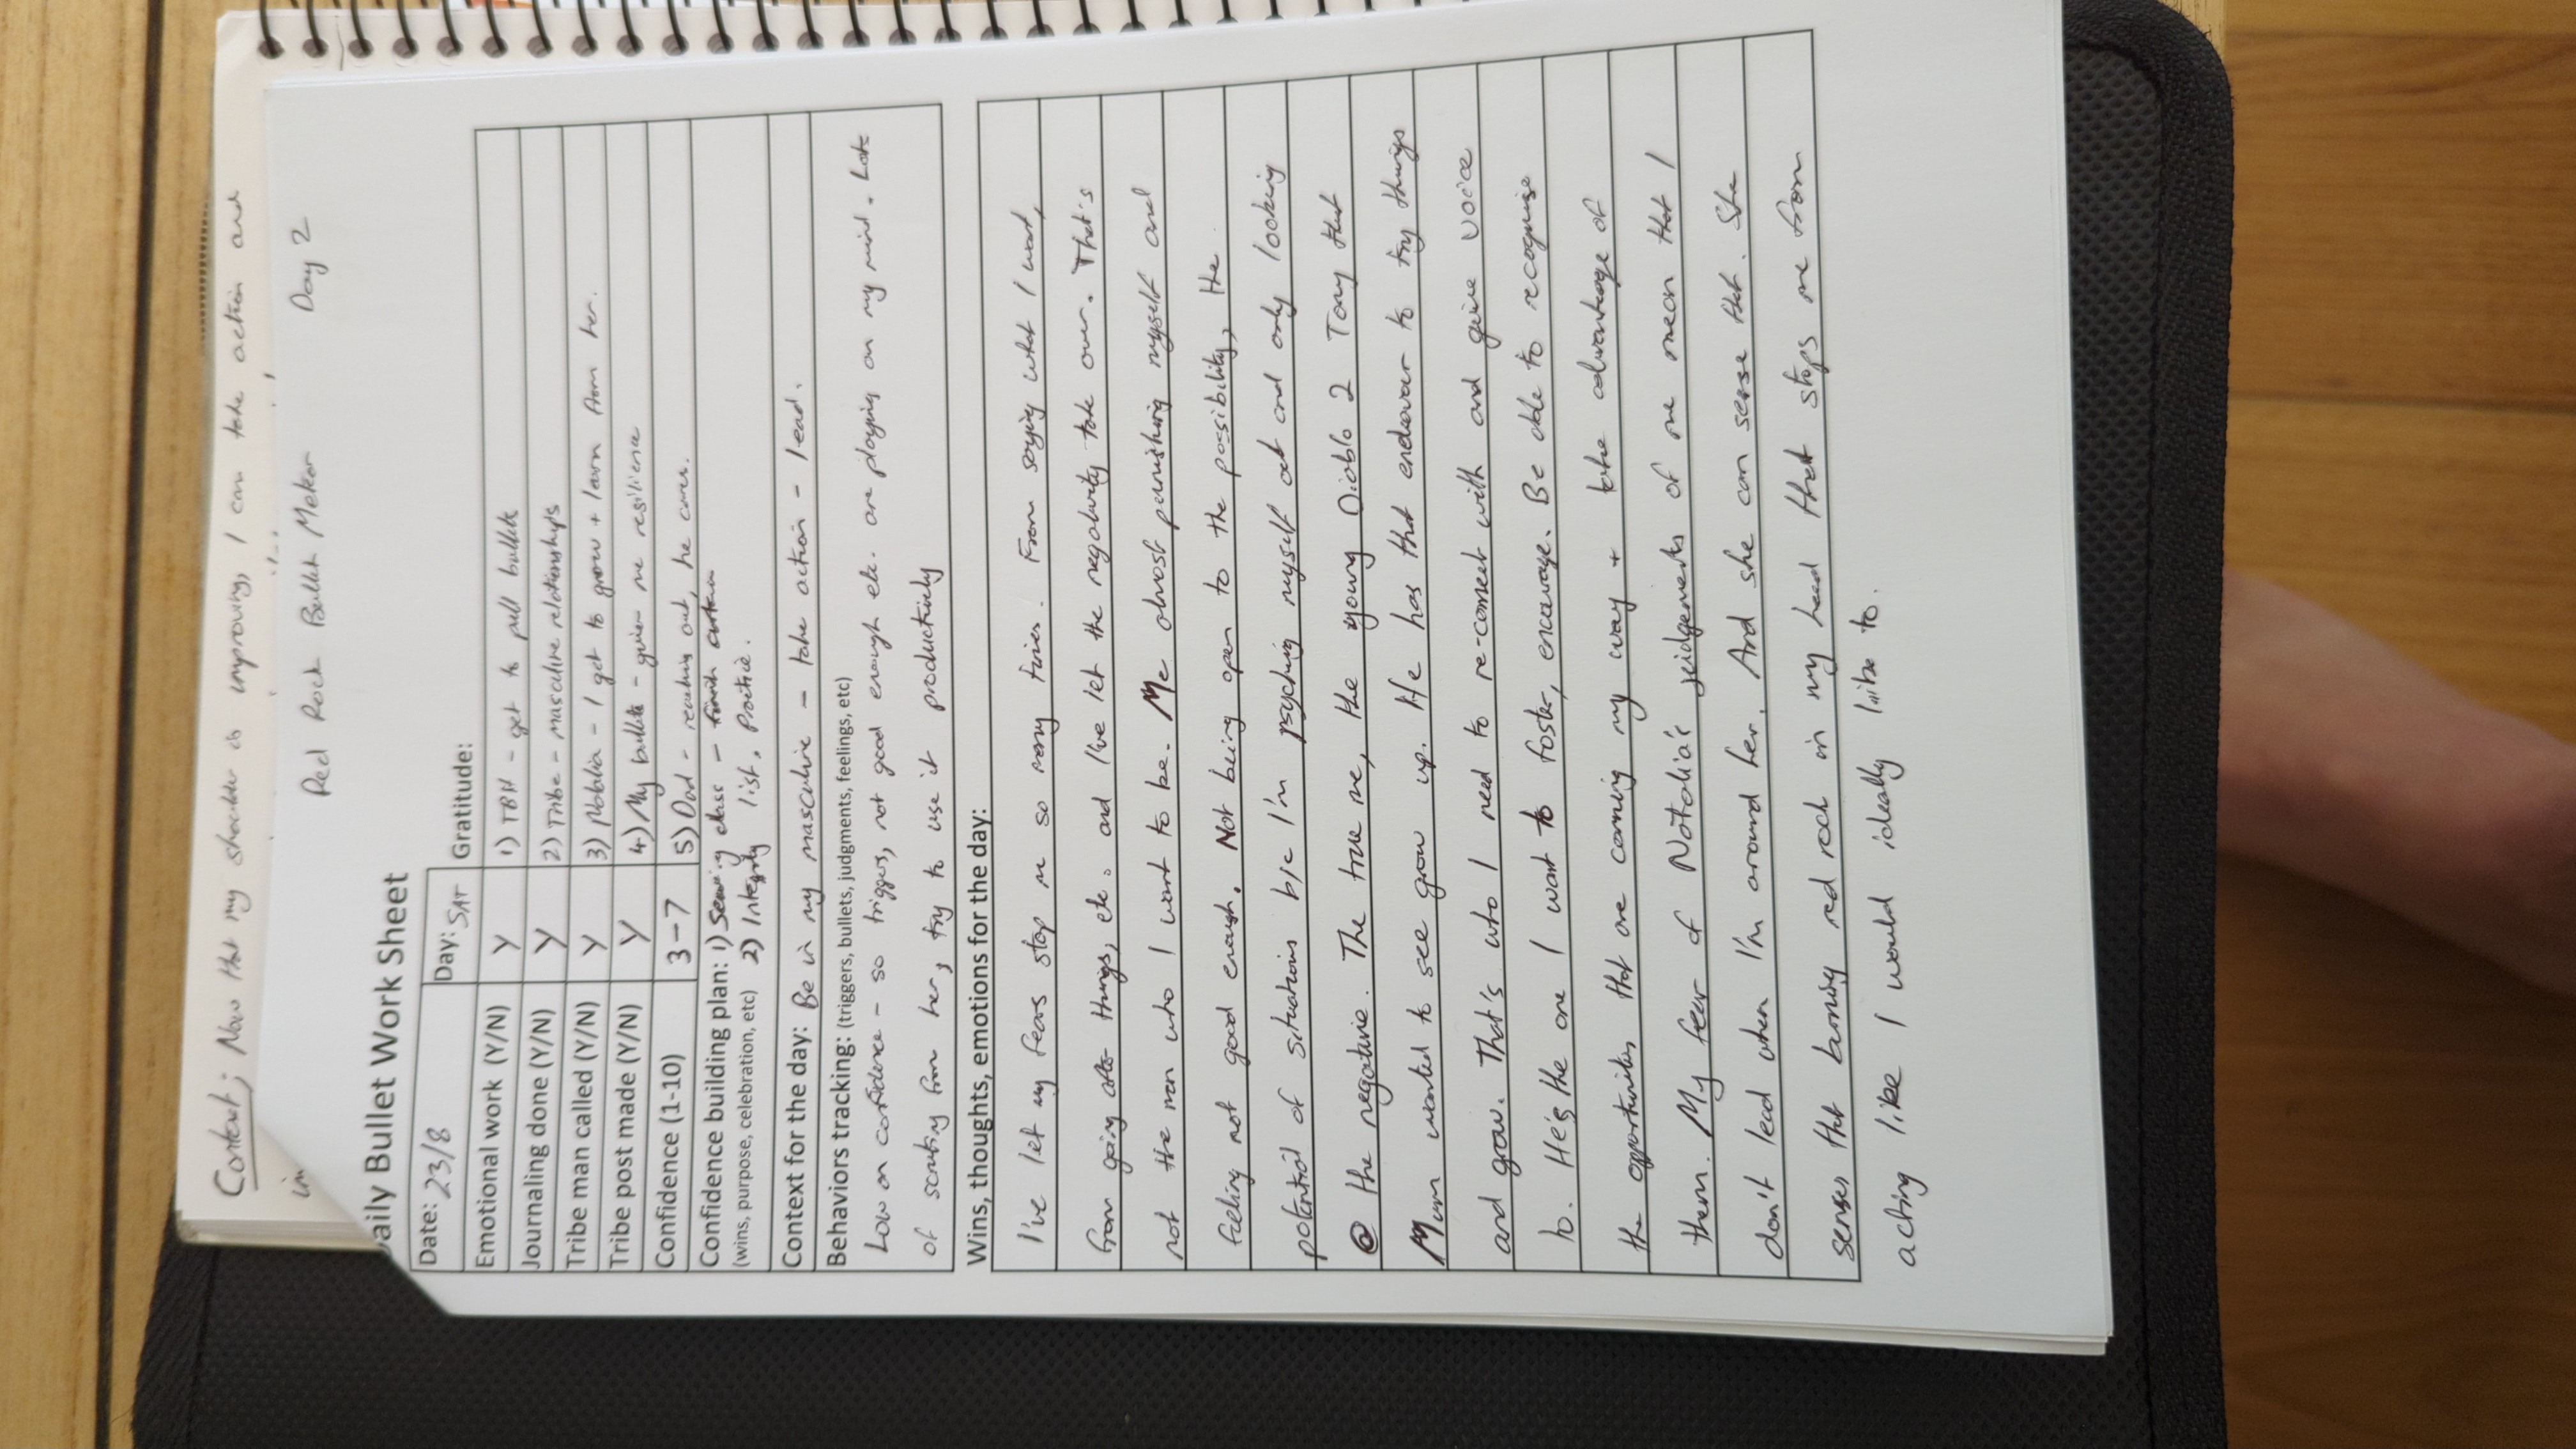 Context; Now that my shoulder is improving, I can take action and
Red Rock Bullet Meter Day 2
aily Bullet Work Sheet
Date: 23/8 Day: SAT Gratitude:
Emotional work (Y/N) Y 1) TBM - get to pull bullets
Journaling done (Y/N) Y 2) Tribe - masculine relationship's
Tribe man called (Y/N) Y 3) Natalia - I get to grow + learn from her.
Tribe post made (Y/N) Y 4) My bullets - given me resilience
Confidence (1-10) 3-7 5) Dad - reaching out, he cares.
Confidence building plan: 1) Sewing class - finish
(wins, purpose, celebration, etc) 2) Integrity list, Practice.
Context for the day: Be in my masculine - take action - lead.
Behaviors tracking: (triggers, bullets, judgments, feelings, etc)
Low on confidence - so triggers, not good enough etc. are playing on my mind. Lots
of scouting from her, try to use it productively
Wins, thoughts, emotions for the day:
I've let my fears stop me so many times. From saying what I want,
from going after things, etc. and I've let the negativity take over. That's
not the man who I want to be. Me almost punishing myself and
feeling not good enough. Not being open to the possibility, the
potential of situations b/c I'm psyching myself out and only looking
@ the negative. The true me, the young Diablo 2 Tony that
Mum wanted to see grow up. He has that endeavour to try things
and grow. That's who I need to re-connect with and give voice
to. He's the one I want to foster, encourage. Be able to recognise
the opportunities that are coming my way + take advantage of
them. My fear of Natalia's judgements of me mean that I
don't lead when I'm around her. And she can sense that. She
senses that burning red rock in my head that stops me from
acting like I would ideally like to.